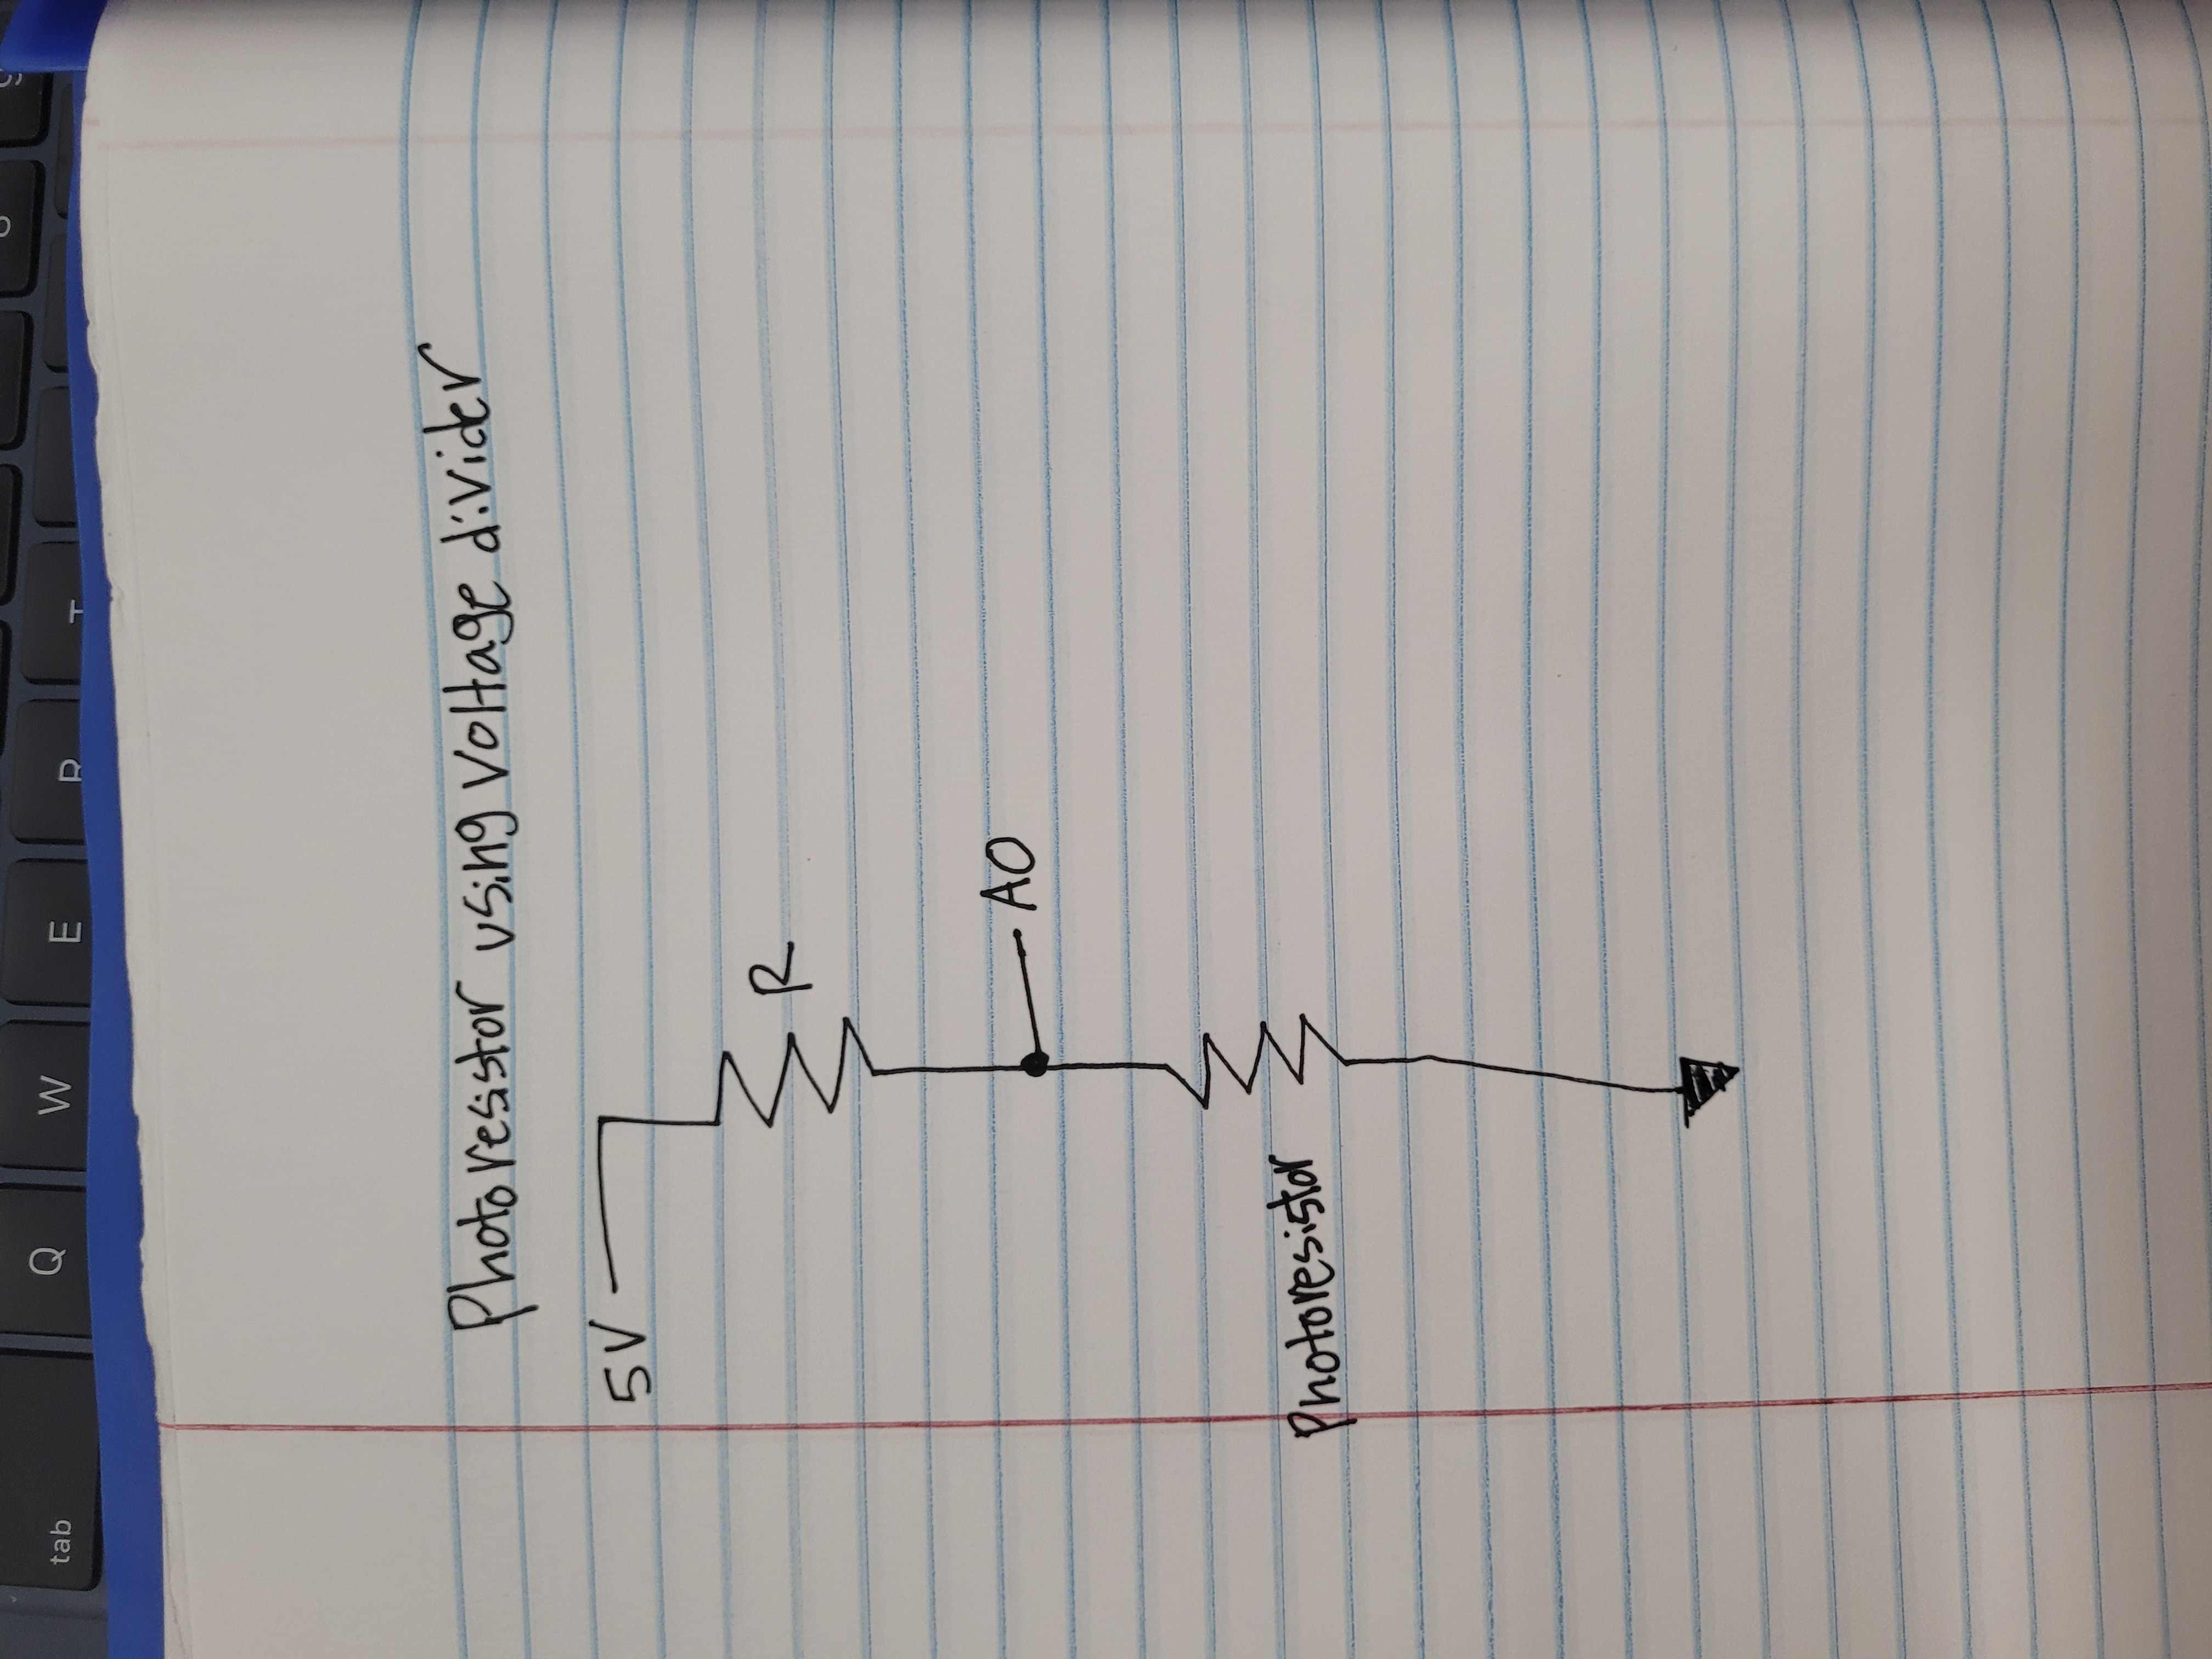 tab
Q
W
E
R
T
Photoresistor using voltage divider
5V
R
A0
Photoresistor